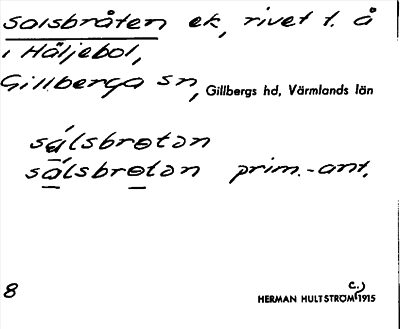 Salsbråten ek, rivet t. å
i Håljebol,
Gillberga sn, Gillbergs hd, Värmlands län
sálsbrɵtən
sálsbrɵtən prim.-ant.
8
HERMAN HULTSTRÖM c.) 1915